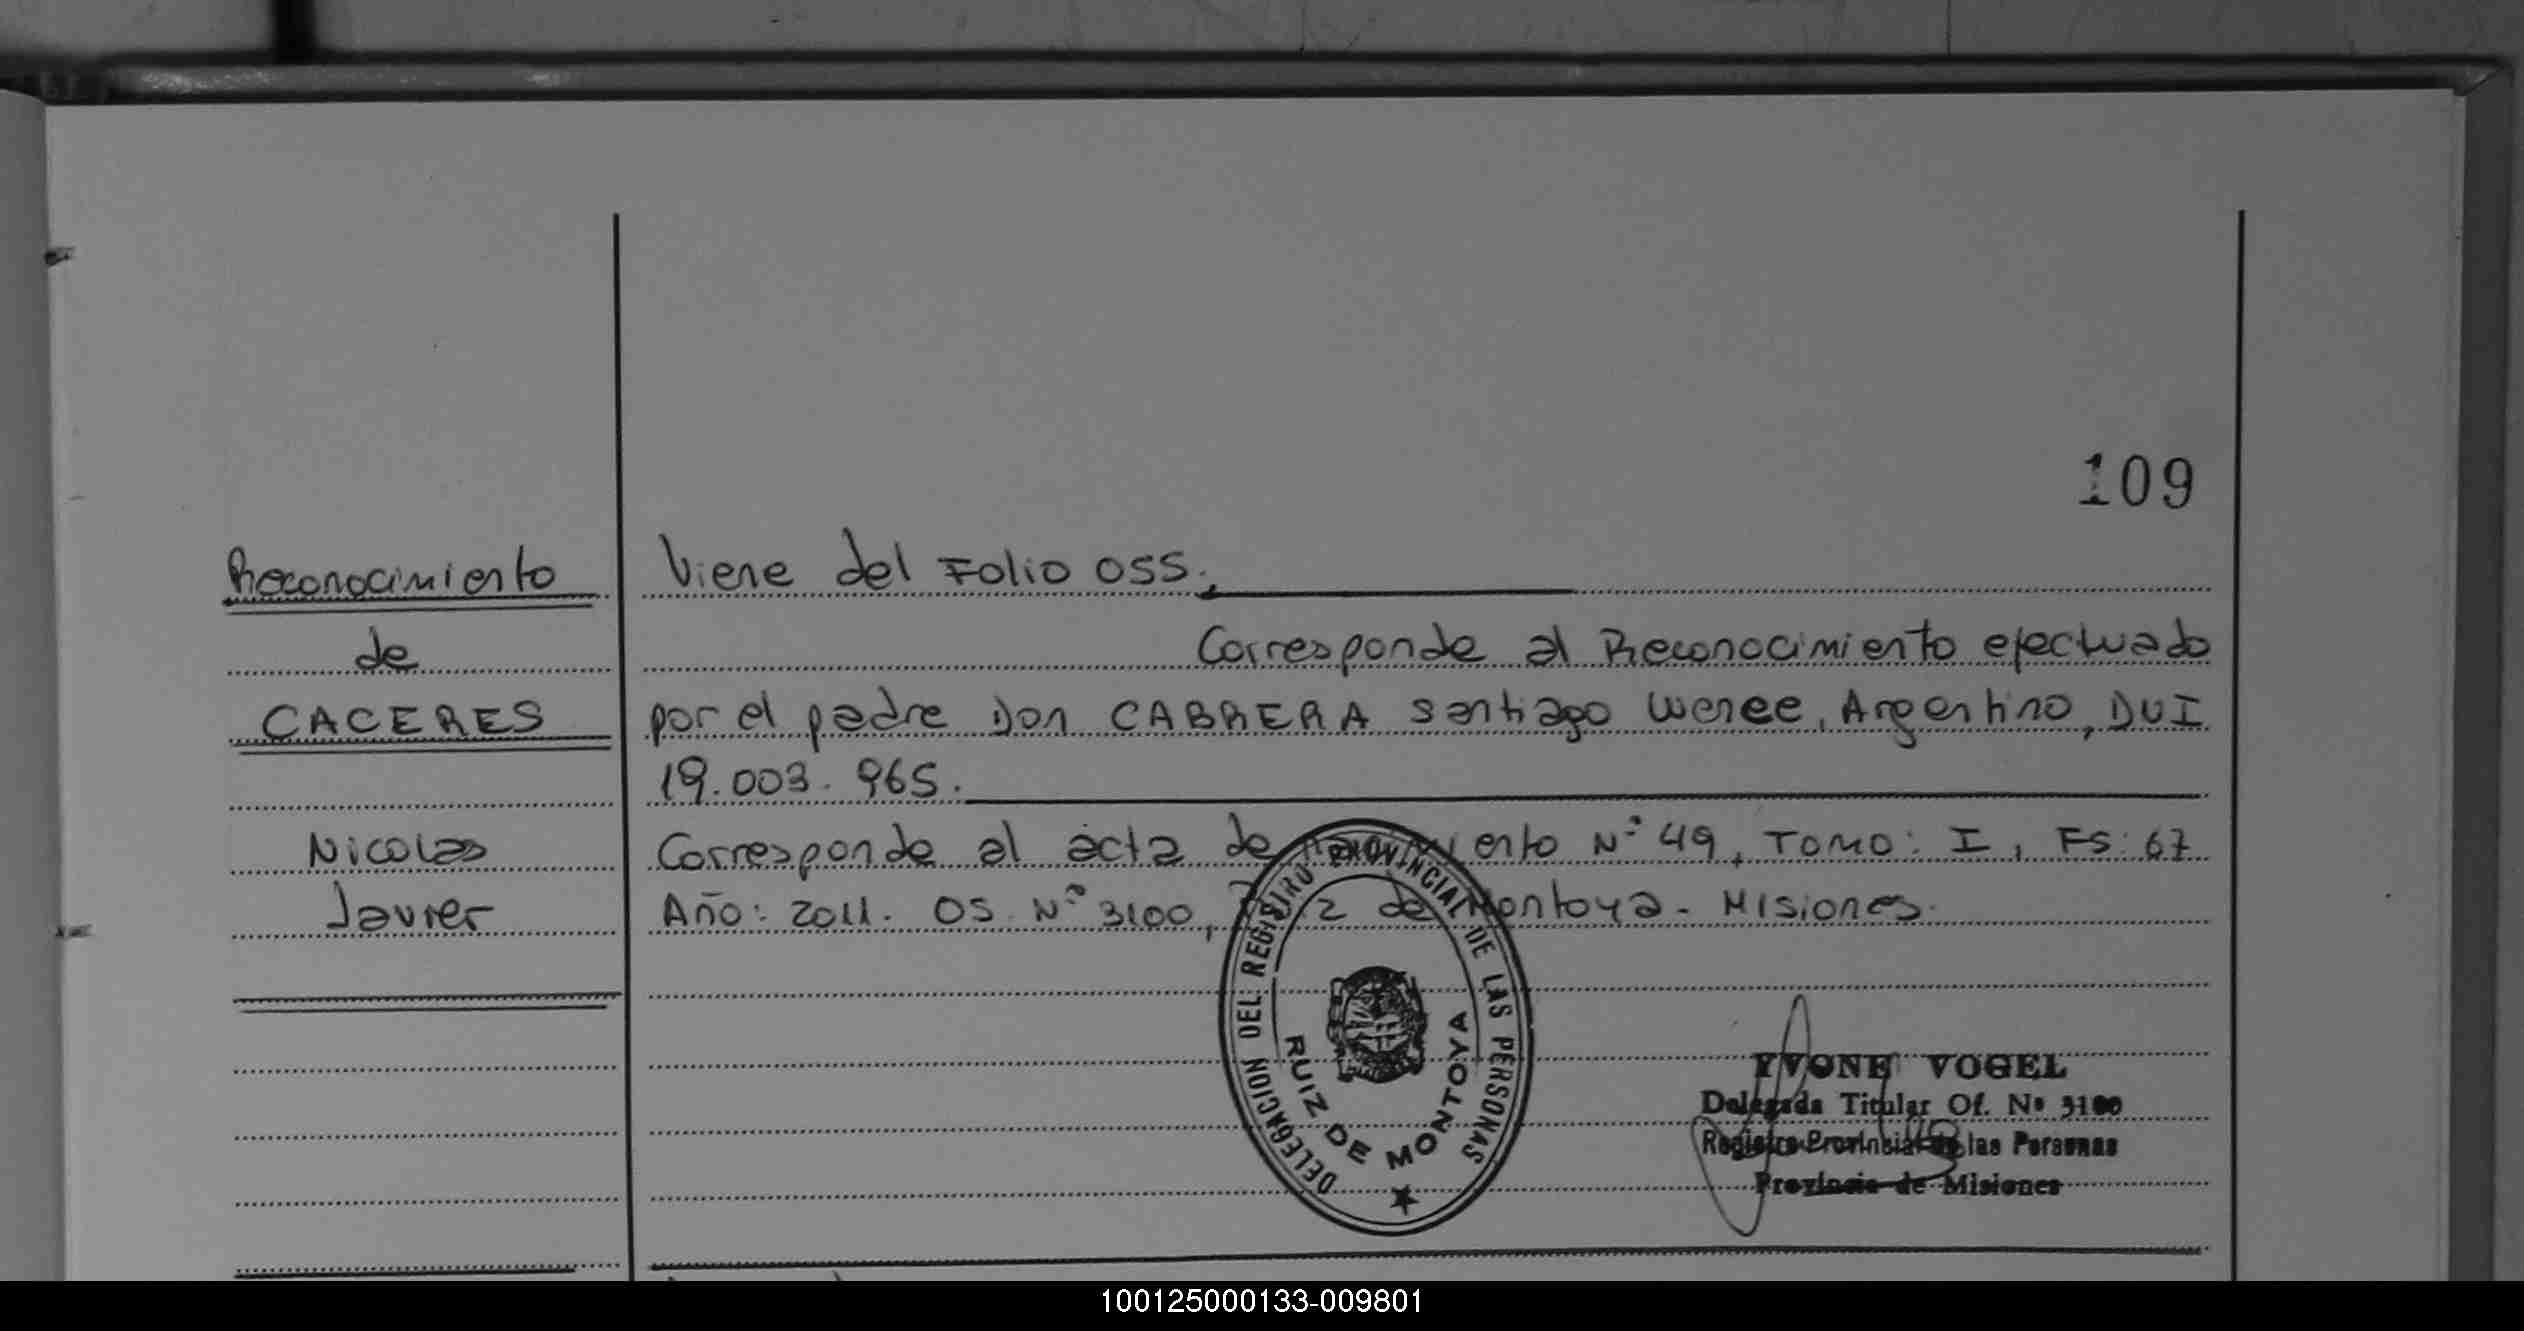 109
Reconocimiento
de
CACERES
Nicolas
Javier
Viene del Folio 055.
Corresponde al Reconocimiento efectuado
por el padre Don CABRERA Santiago Wenee, Argentino, DUI
19.003.965.
Corresponde al acta de nacimiento Nº 49, TOMO: I, FS: 67
Año: 2011. OS. Nº 3100, Ruiz de Montoya - Misiones.
DELEGACION DEL REGISTRO PROVINCIAL DE LAS PERSONAS
RUIZ DE MONTOYA
YVONE VOGEL
Delegada Titular Of. Nº 3100
Registro Provincial de las Personas
Provincia de Misiones
100125000133-009801